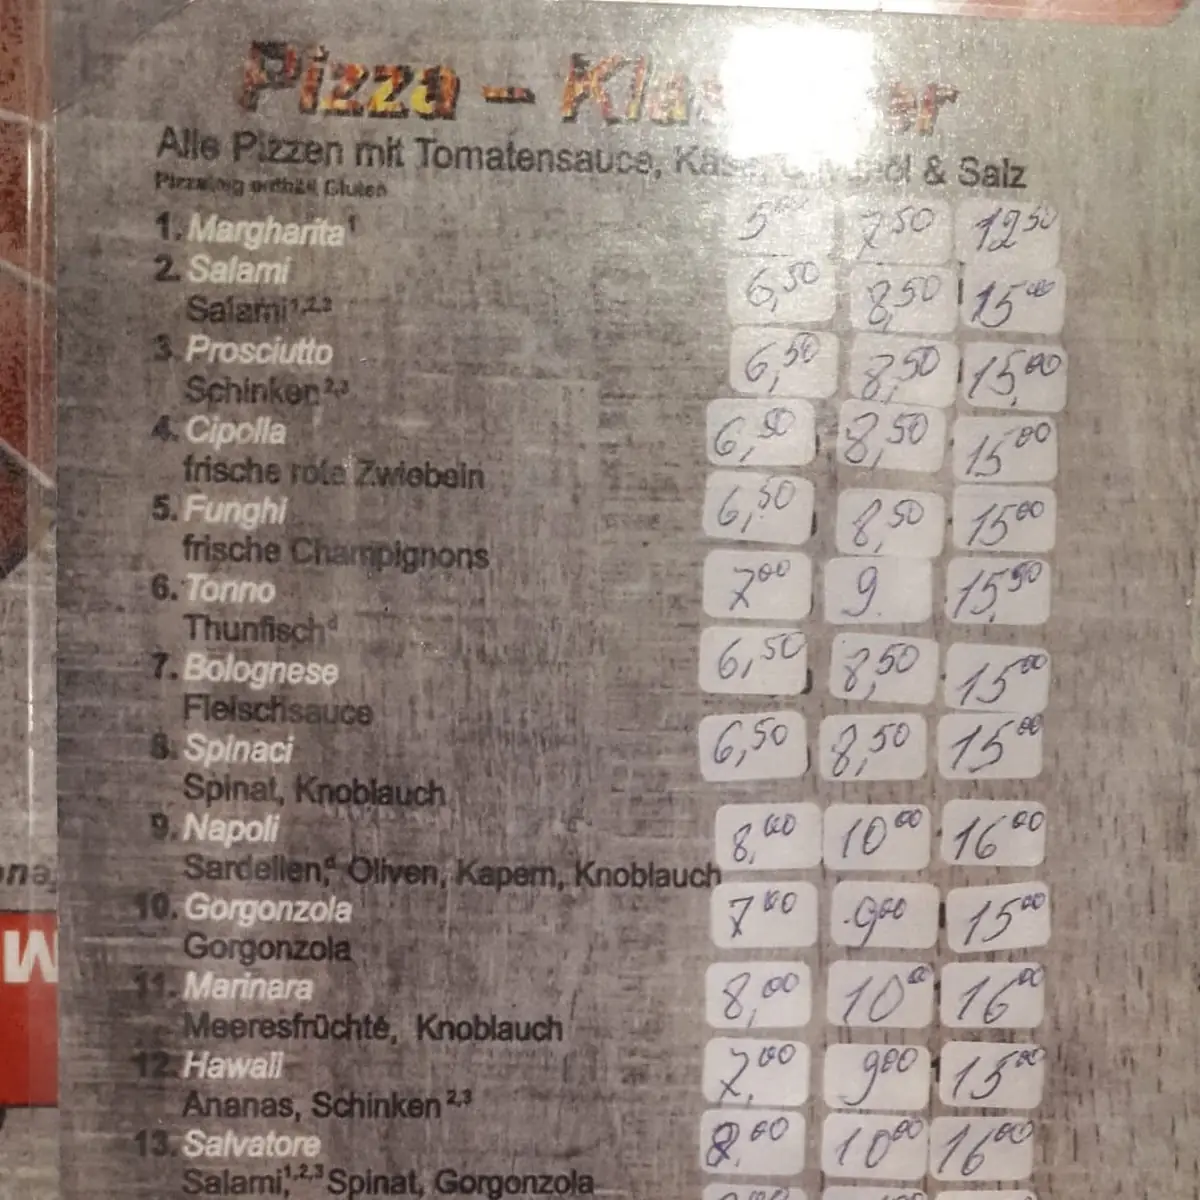 Pizza -
Alle Pizzen mit Tomatensauce, & Salz
enthält Gluten
1. Margharita¹ 7,50 12,50
2. Salami 6,50 8,50 15,00
Salami¹,²,³
3. Prosciutto 6,50 8,50 15,00
Schinken²,³
4. Cipolla 6,50 8,50 15,00
frische rote Zwiebeln
5. Funghi 6,50 8,50 15,00
frische Champignons
6. Tonno 7,00 9. 15,50
Thunfisch⁴
7. Bolognese 6,50 8,50 15,00
Fleischsauce
8. Spinaci 6,50 8,50 15,00
Spinat, Knoblauch
9. Napoli 8,00 10,00 16,00
Sardellen,⁴ Oliven, Kapern, Knoblauch
10. Gorgonzola 7,00 9,00 15,00
Gorgonzola
11. Marinara 8,00 10,00 16,00
Meeresfrüchte, Knoblauch
12. Hawaii 7,00 9,00 15,00
Ananas, Schinken²,³
13. Salvatore 8,00 10,00 16,00
Salami,¹,²,³ Spinat, Gorgonzola